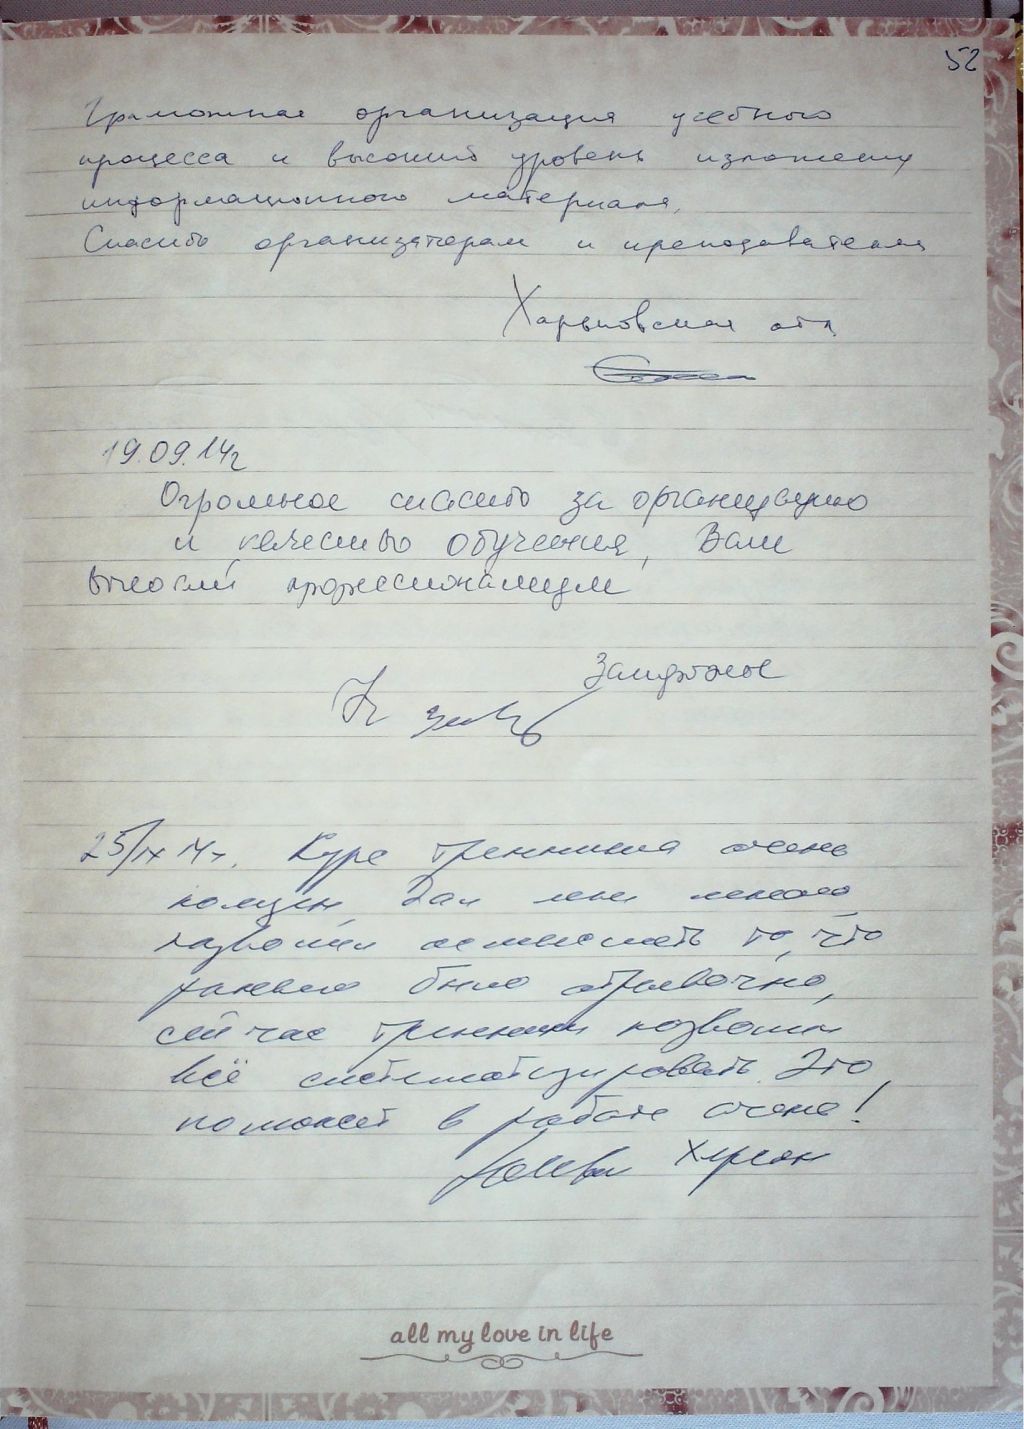 52
Грамотная организация учебного
процесса и высокий уровень изложения
информационного материала.
Спасибо организаторам и преподавателям
Харьковская обл
19.09.14г
Огромное спасибо за организацию
и качество обучения, Ваш
высокий профессионализм
25/IX 14г. Курс тренинга очень
полезен. Дал мне много
позволил осмыслить то, что
раньше было отрывочно,
сейчас тренинг позволил
всё систематизировать. Это
поможет в работе очень!
Херсон
all my love in life